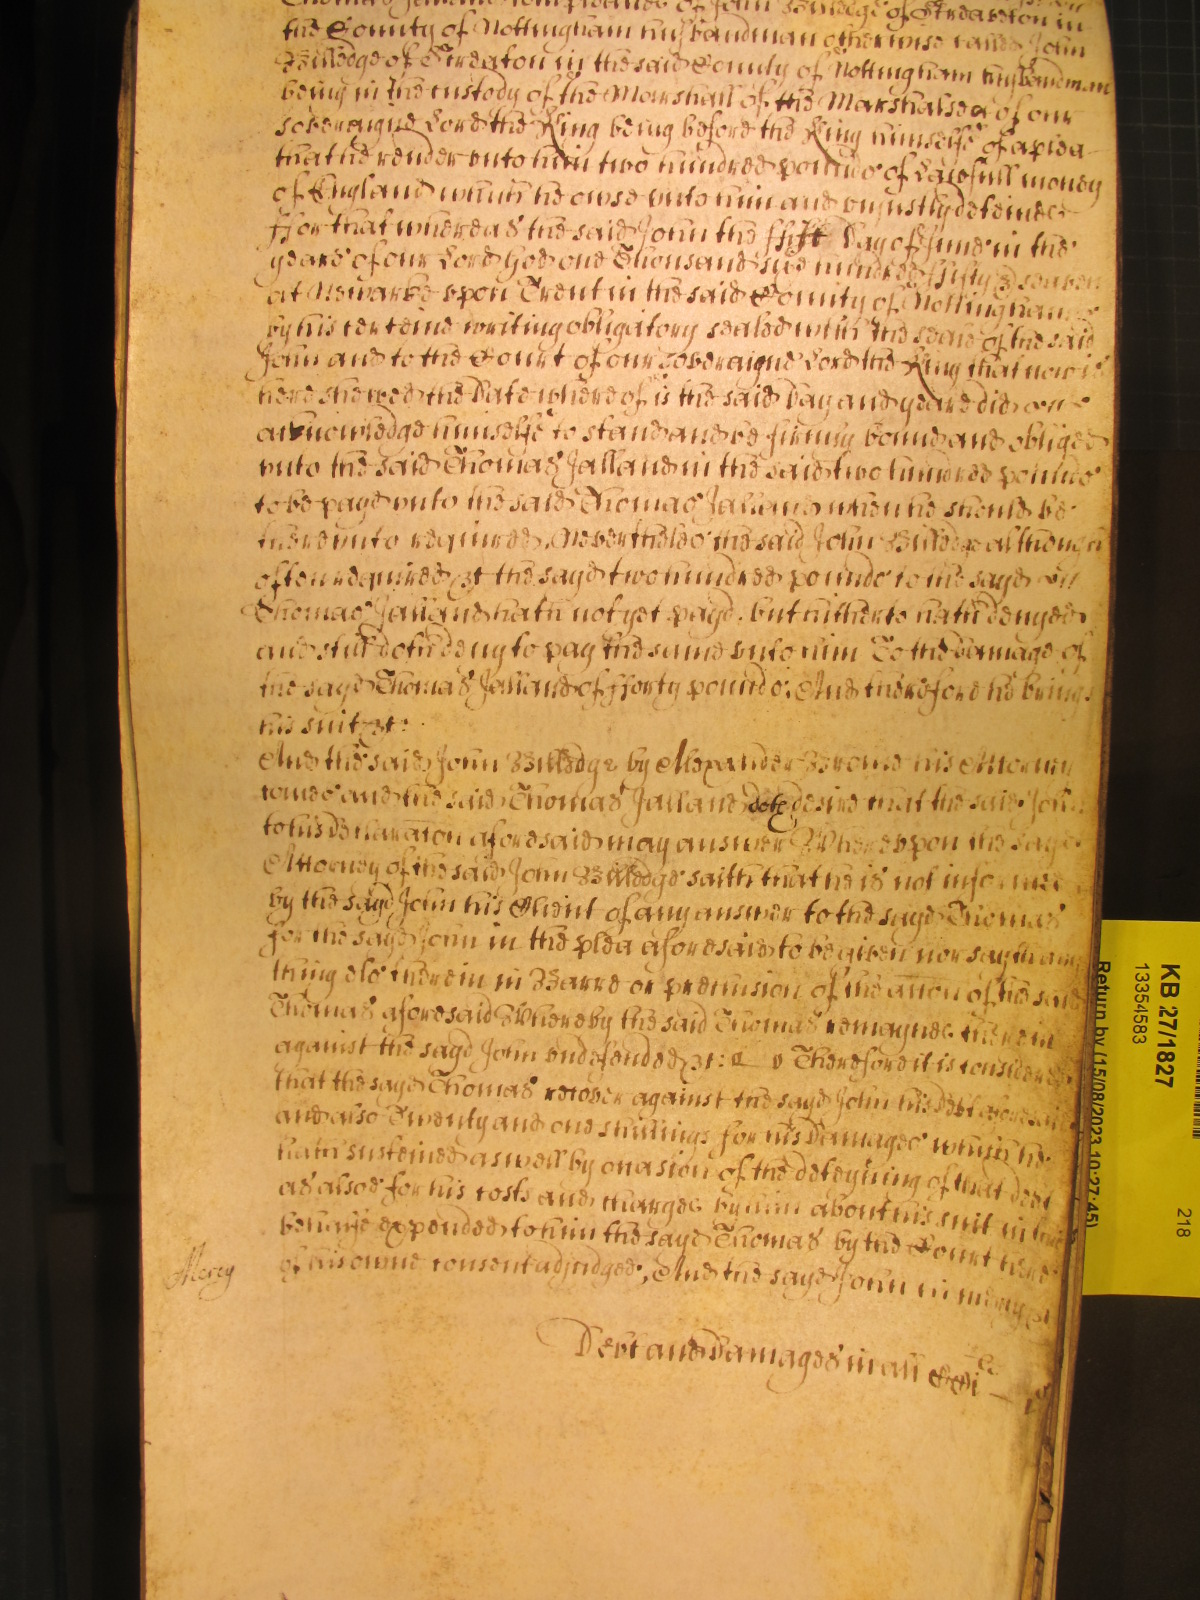 Thomas Jalland complaines of John Billedge of Streaton in
the County of Nottingham husbandman otherwise called John
Billedge of Streaton in the said County of Nottingham husbandman
being in the custody of the Marshall of the Marshalsea of our
soveraigne Lord the King being before the King himselfe of a plea
that he render unto him two hundred pounds of Lawfull money
of England which he owes unto him and unjustly deteines
ffor that whereas the said John the ffift Day of June in the
yeare of our Lord God one Thousand six hundred ffifty & seaven
at Newarke upon Trent in the said County of Nottingham
by his certeine writing obligatory sealed with the seale of the said
John and to the Court of our soveraigne Lord the King that now is
here shewed the Date whereof is the said Day and yeare did
acknowledge himselfe to stand and be firmly bound and obliged
unto the said Thomas Jalland in the said two hundred pounds
to be payd unto the said Thomas Jalland when he should be
thereunto required. Neverthelesse the said John Billedge although
often required &c the sayd two hundred pounds to the sayd
Thomas Jalland hath not yet payd, but hitherto hath denyed
and still doth deny to pay the same unto him To the damage of
the sayd Thomas Jalland of fforty pounds; And therefore he brings
his suit &c:
And the said John Billedge by Alexander Brome his Attorney
comes and the said Thomas Jalland doth desire that the said John
to his Declaracon aforesaid may answer Whereupon the sayd
Attorney of the said John Billedge saith that he is not informed
by the sayd John his Client of any answer to the sayd Thomas
for the sayd John in the plea aforesaid to be given nor sayth any
thing els therein in Barre or preclusion of the accon of the said
Thomas aforesaid Whereby the said Thomas remaynes therein
against the sayd John undefended &c: Therefore it is considered
that the sayd Thomas recover against the sayd John his Debt aforesaid
and also Twenty and one shillings for his Damages which he
hath susteined as well by occasion of the deteyning of that debt
as alsoe for his costs and charges by him about his suit in this
behalfe expended to him the sayd Thomas by the Court here
of his owne consent adjudged; And the sayd John in mercy &c
Mercy
Debt and Damages in all CCi
KB 27/1827
13354583
218
Return by (15/08/2023 10:27:45)